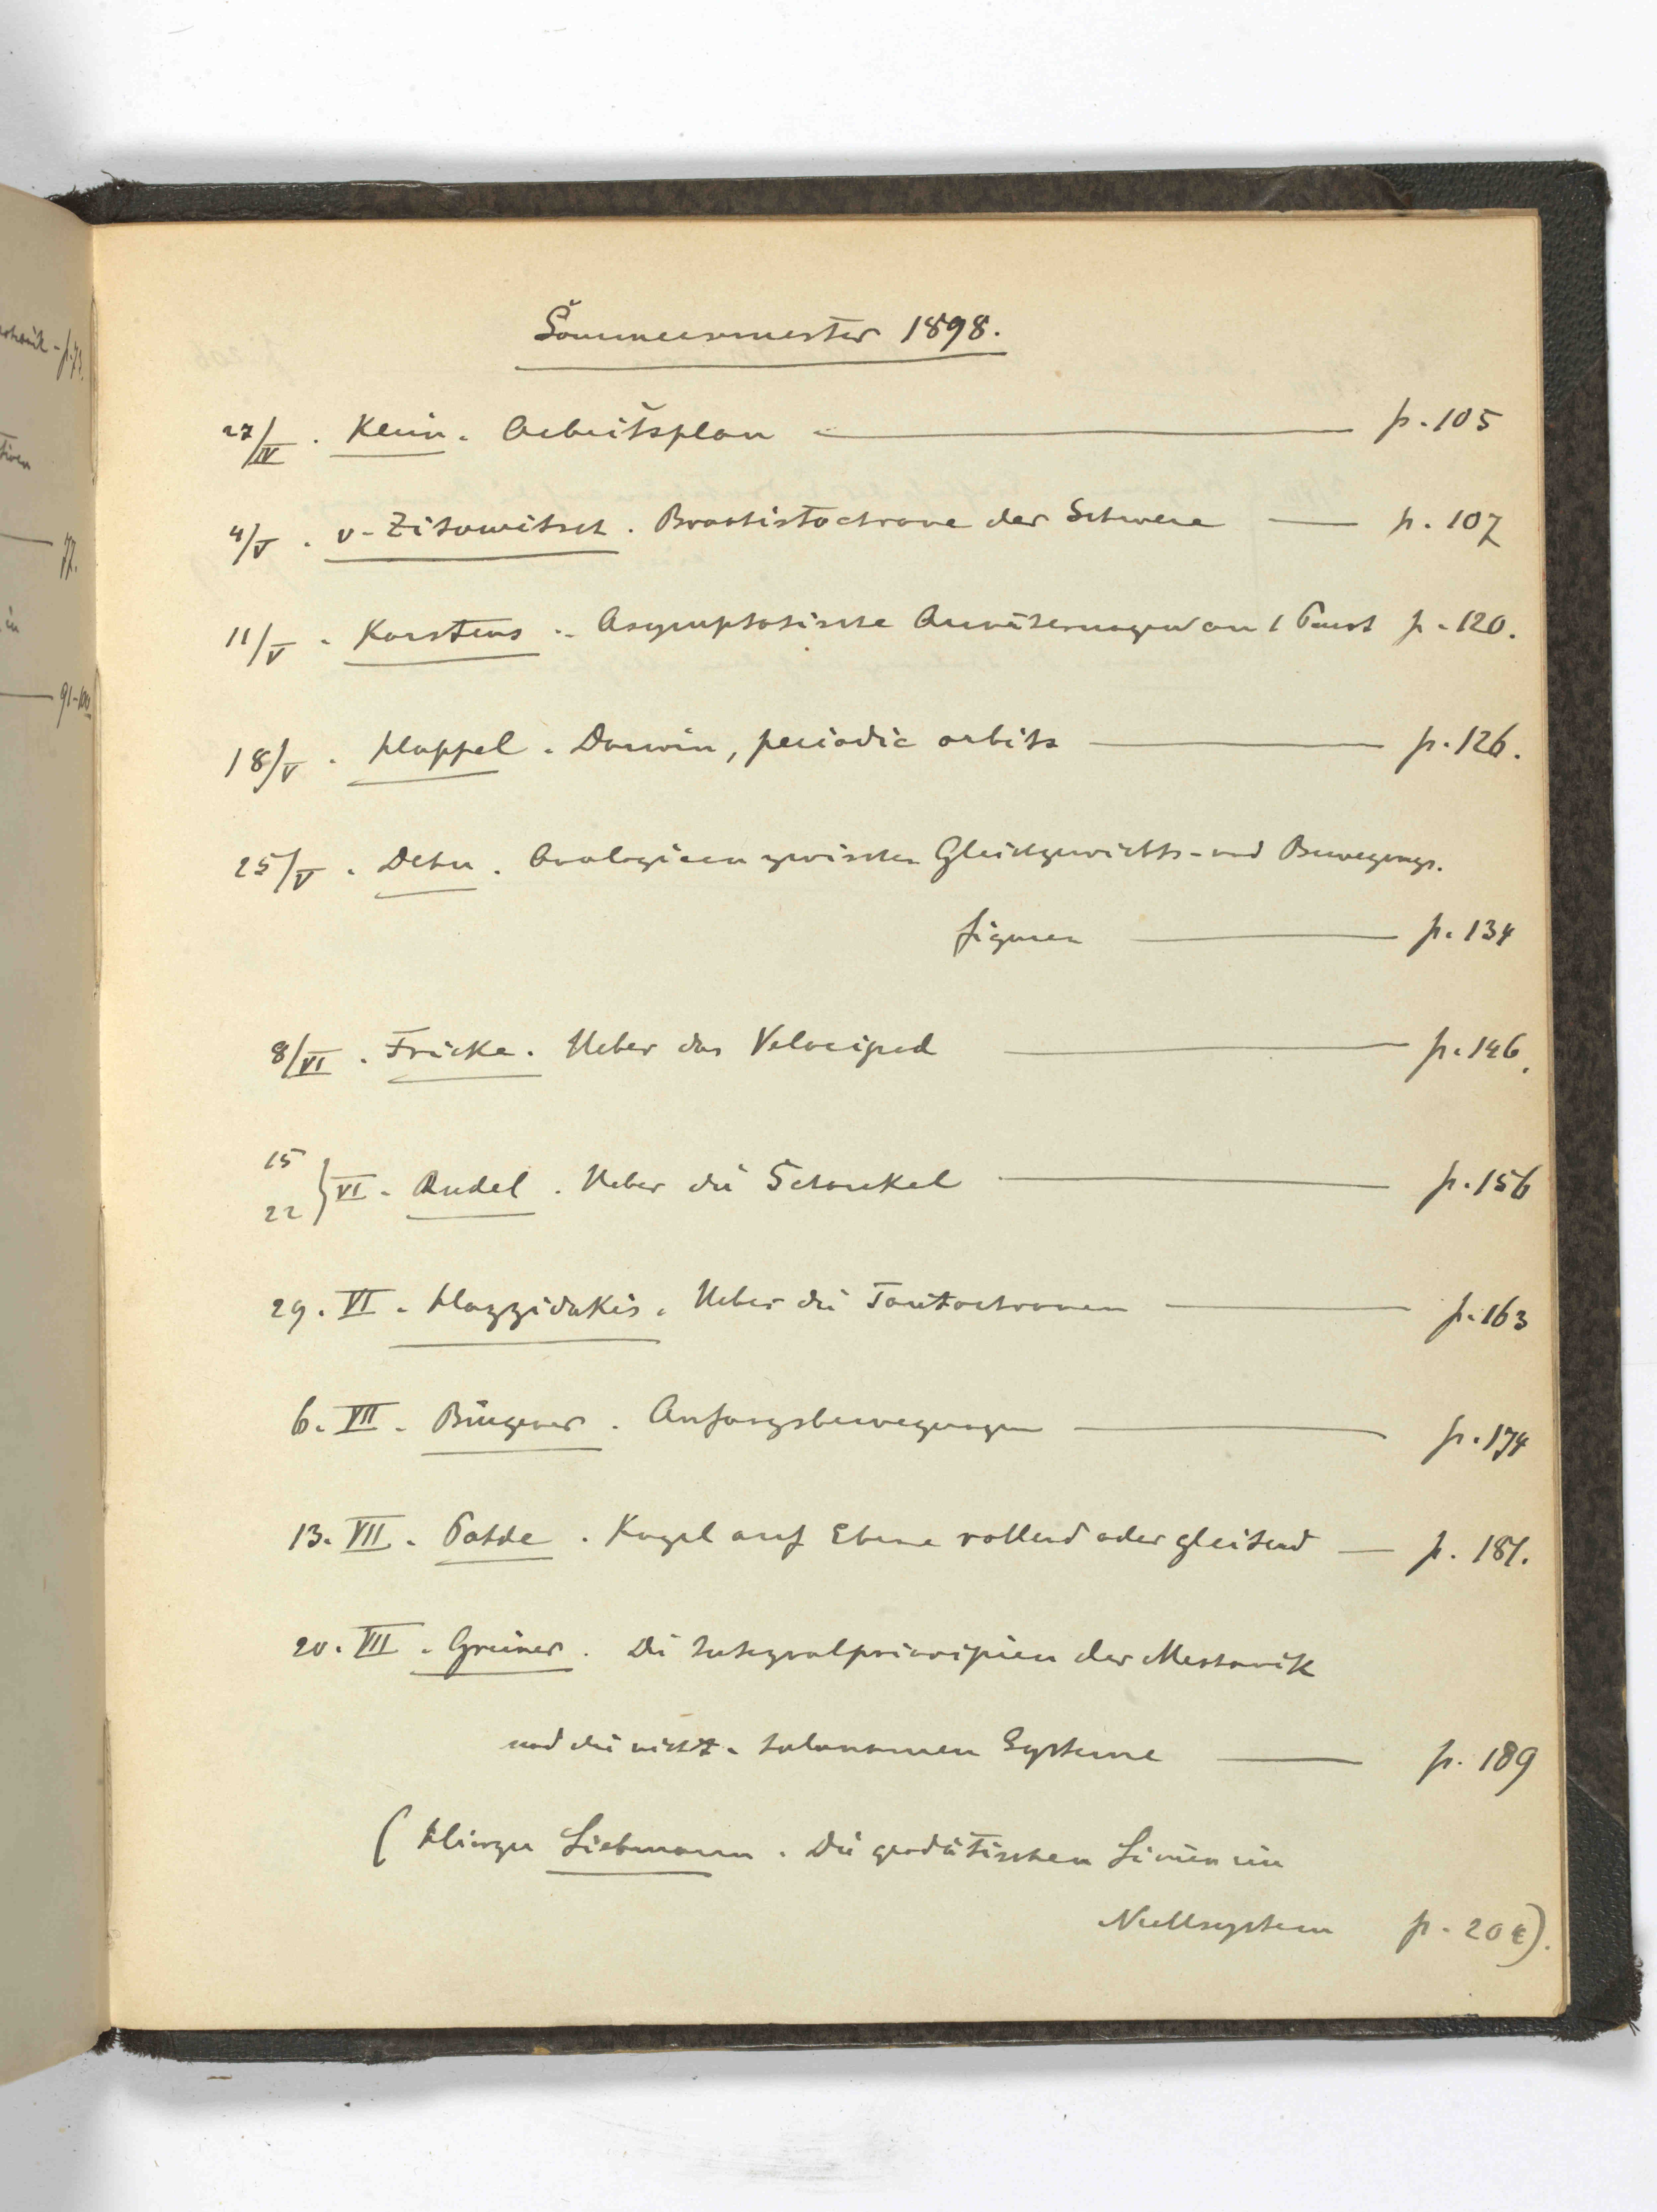 Sommersemester 1898.
27/IV. Klein. Arbeitsplan — p. 105
4/V. v. Zitowitsch. Brachistochrone der Schwere — p. 107
11/V. Karstens. Asymptotische Annäherungen an 1 Punct p. 120.
18/V. Happel. Darwin, periodic orbits — p. 126.
25/V. Dehn. Analogieen zwischen Gleichgewichts- und Bewegungs-
figuren — p. 134
8/VI. Fricke. Ueber das Velociped — p. 146.
15
22 } VI. Rudel. Ueber die Schaukel — p. 156
29. VI. Hazzidakis. Ueber die Tautochronen — p. 163
6. VII. Büngener. Anfangsbewegungen — p. 174
13. VII. Kugel auf Ebene rollend oder gleitend — p. 181.
20. VII. Greiner. Die Integralprincipien der Mechanik
und die nicht-holonomen Systeme — p. 189
(Hierzu Liebmann. Die geodätischen Linien im
Nullsystem p. 204).
77.
91-100